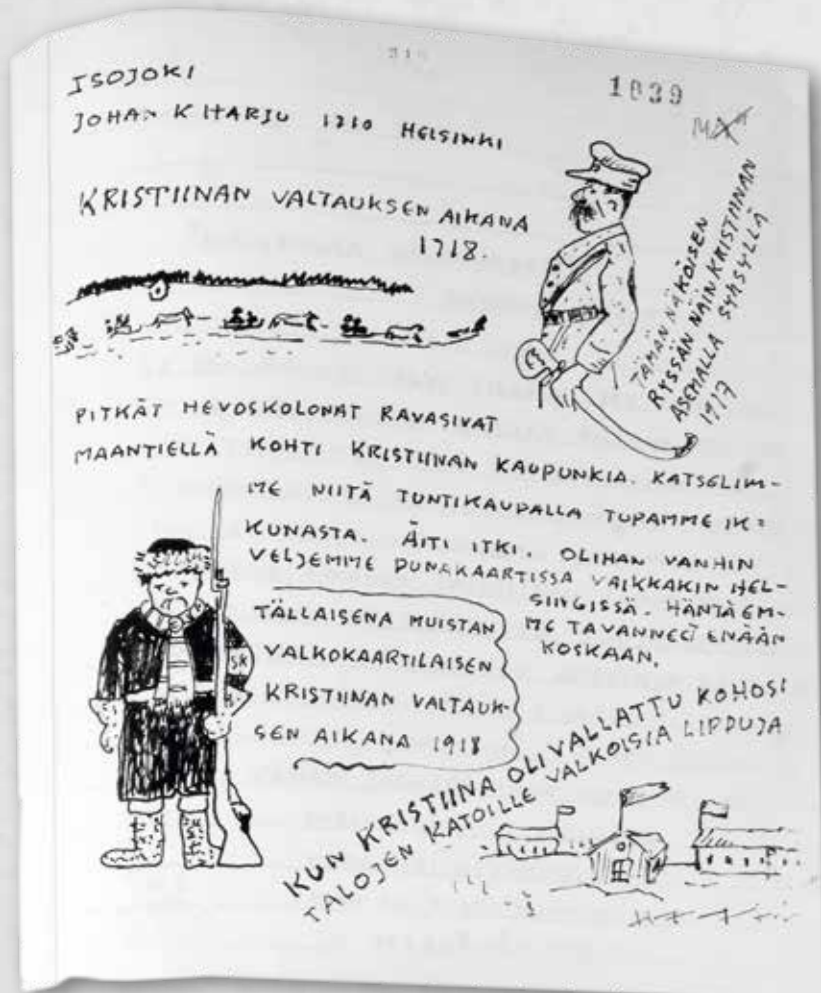 ISOJOKI
1039
JOHAN KITARJU 1710 HELSINKI
KRISTIINAN VALTAUKSEN AIKANA
1718.
TÄMÄN NÄKÖISEN
RYSSÄN NÄIN KRISTIINAN
ASEMALLA SYKSYLLÄ
1917
PITKÄT HEVOSKOLONAT RAVASIVAT
MAANTIELLÄ KOHTI KRISTIINAN KAUPUNKIA. KATSELIM-
ME NIITÄ TUNTIKAUPALLA TUPAMME IK=
KUNASTA. ÄITI ITKI. OLIHAN VANHIN
VELJEMME PUNAKAARTISSA VAIKKAKIN HEL-
SINGISSÄ. HÄNTÄ EM-
ME TAVANNEET ENÄÄN
KOSKAAN.
TÄLLAISENA MUISTAN
VALKOKAARTILAISEN
KRISTIINAN VALTAUK-
SEN AIKANA 1918
SK
KUN KRISTIINA OLI VALLATTU KOHOSI
TALOJEN KATOILLE VALKOISIA LIPPUJA